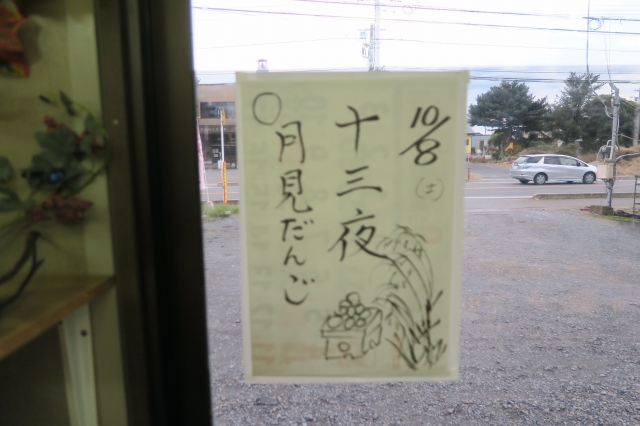 10/8
(土)
十三夜
○月見だんご